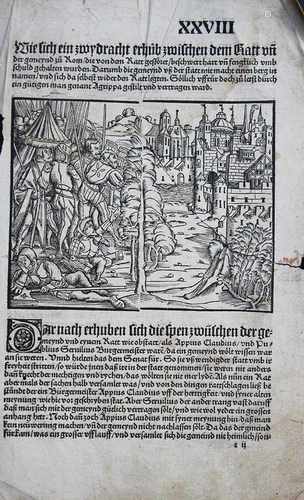 XXVIII
Wie sich ein zwydracht erhůb zwischen dem Ratt vñ
der gemeynd zů Rom / die von dem Ratt / beschwert hart vñ fengklich vmb
schuld gehalten wurden. Darumb die gemeynd vß der statt nit einen berg in
namen / vnd sich da selbest wider den Ratt legten. Söllich vffrůr doch zů letst durch
ein gütigen man genant Agrippa gestilt vnd vertragen ward.
Dar nach erhuben sich die spen zwüschen der ge
meynd vnd eynem Ratt wie obstatt / als Appius Claudius / vnd Pu
blius Seruilius Burgermeister warē / da ein gemeynd wölt wissen war
an sie weren. Vnnd hielten das Senat für. So sie vßwendig der statt vmb ir
freyheit stritten / so würdē inen daß ir in der statt genommen / sie weren nit anders
dañ knecht der mechtigen vnd rychen / das wolten sie nit me
aber mals der sachen halb versamlet was / vnd von den dingen rattschlagen ließ
stůnde der ein Bürgermeister Appius Claudius vff der hertigkeit vnd syner alten
meynung wie bie vor geschryben stat. Aber Seruilius der ander
daß man sich mit der gemeynd gütlich vertragen sölt / vnd wie wol yeder ein grossen
anhang het. Noch dañ zoch Appius Claudius mit syner meynung hin / daß man
keyn neüwerung machen / vñ der gemeynd nicht nachlassen söll. Da das der gemeind
für kam / was ein grosser vfflauff / vnd versamlet sich die gemeind nie heimlich / son
a ij